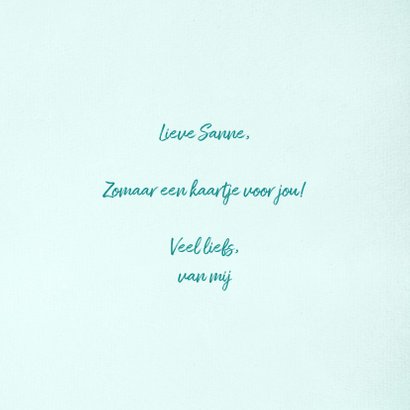 Lieve Sanne,
Zomaar een kaartje voor jou!
Veel liefs,
van mij